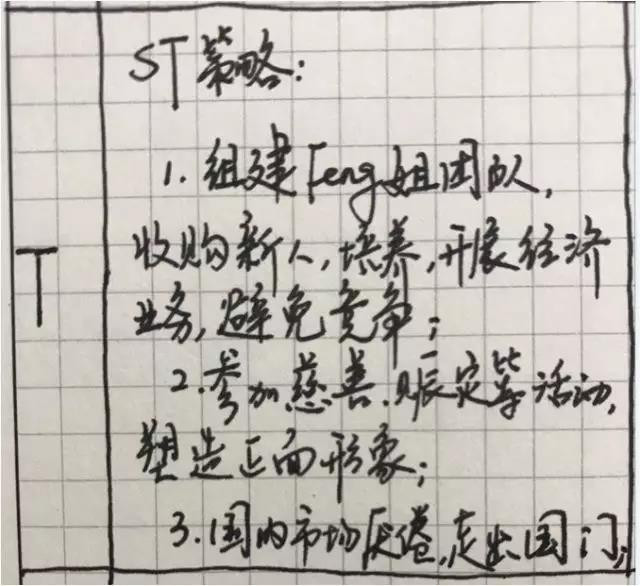 ST策略:
1.组建Feng姐团队,
T
收购新人,培养,开展经济
业务,避免竞争;
2.参加慈善.赈灾等活动,
塑造正面形象;
3.国内市场厌倦,走出国门;